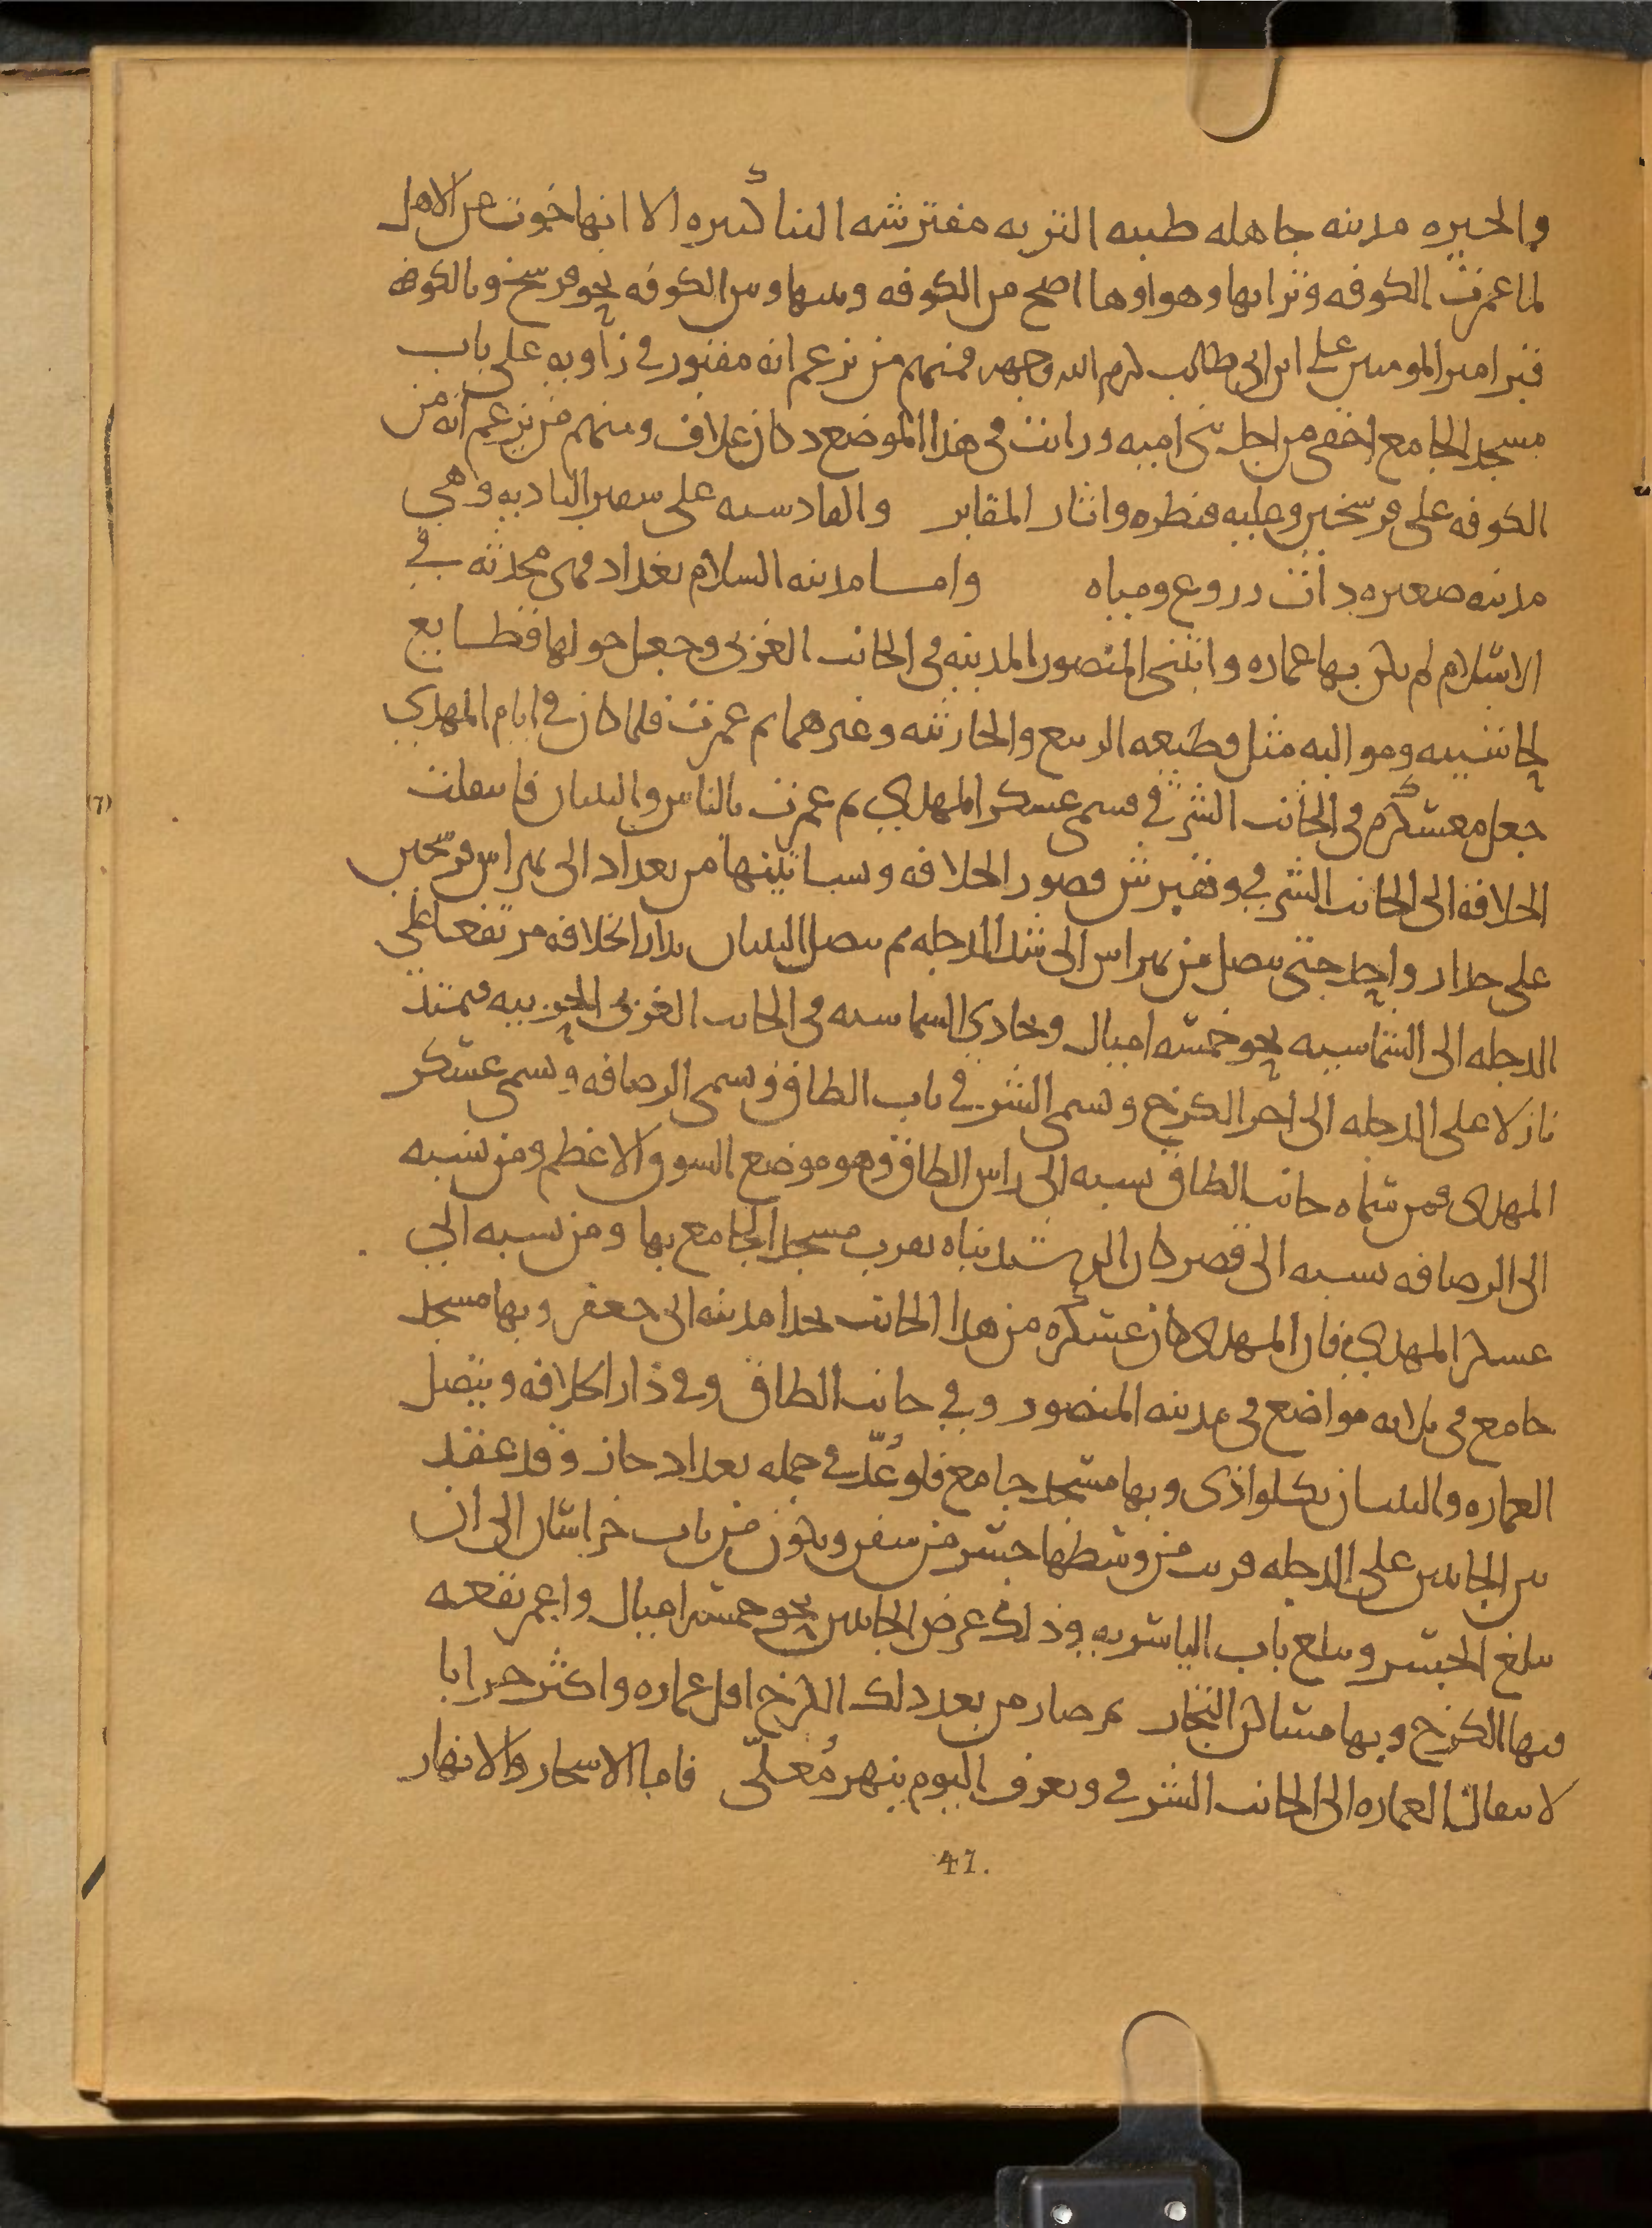 والحيره مدينه جاهله طيبه التربه مفترشه البنا كبيره الا انها خوت عن الاهل
لما عمرت الكوفه وترابها وهواوها اصح من الكوفه وبينها وبين الكوفه نحو فرسخ وبالكوفه
قبر امير المومنين على ابن ابى طالب كرم الله وجهه فمنهم من يزعم انه مقبور في زاويه على باب
مسجد الجامع اخفى من اجل بنى اميه ورايت في هذا الموضع دكان علاف ومنهم من يزعم انه من
الكوفه على فرسخين وعليه قنطره واثار المقابر والقادسيه على سفير الباديه وهي
مدينه صغيره ذات زروع ومياه وامـا مدينه السلام بغداد فهى محدثه في
الاسلام لم يكن بها عماره وابتنى المنصور المدينه في الجانب الغربى وجعل حولها قطايع
لحاشيته ومواليه مثل قطيعه الربيع والحارثيه وغيرهما ثم عمرت فلما كان في ايام المهدي
جعل معسكره في الجانب الشرقي فسمى عسكر المهدي ثم عمرت بالناس والبنيان فانتقلت
الخلافه الى الجانب الشرقي وتفترش قصور الخلافه وبساتينها من بغداد الى نهر اس فرسخين
على جدار واحد حتى يتصل من نهر اس الى شط الدجله ثم يتصل البنيان بدار الخلافه مرتفعا على
الدجله الى الشماسيه نحو خمسه اميال وتحاذي الشماسيه في الجانب الغربى الحربيه فيمتد
نازلا على الدجله الى اخر الكرخ وسمى الشرقي باب الطاق وسمى الرصافه وسمى عسكر
المهدى فمن سماه جانب الطاق نسبه الى راس الطاق وهو موضع السوق الاعظم ومن نسبه
الى الرصافه نسبه الى قصر كان الرشيد بناه بقرب مسجد الجامع بها ومن نسبه الى
عسكر المهدي فان المهدى كان عسكره من هذا الجانب بحدا مدينه ابى جعفر وبها مسجد
جامع في ثلاثه مواضع في مدينه المنصور وفي جانب الطاق وفي دار الخلافه ويتصل
العماره والبنيان بكلواذى وبها مسجد جامع فلو عُدّ في جمله بغداد جاز وقد عقد
بين الجانبين على الدجله قريب من وسطها جسر من سفن ويكون من باب خراسان الى ان
يبلغ الجسر ويبلغ باب الياسريه وذلك عرض الجانبين نحو خمسه اميال واعمر بقعه
فيها الكرخ وبها مساكن التجار ثم صار من بعد ذلك الكرخ اقل عماره واكثر خرابا
لانتقال العماره الى الجانب الشرقي ويعرف اليوم بنهر مُعلّى فاما الاشجار والانهار
47.
(7)